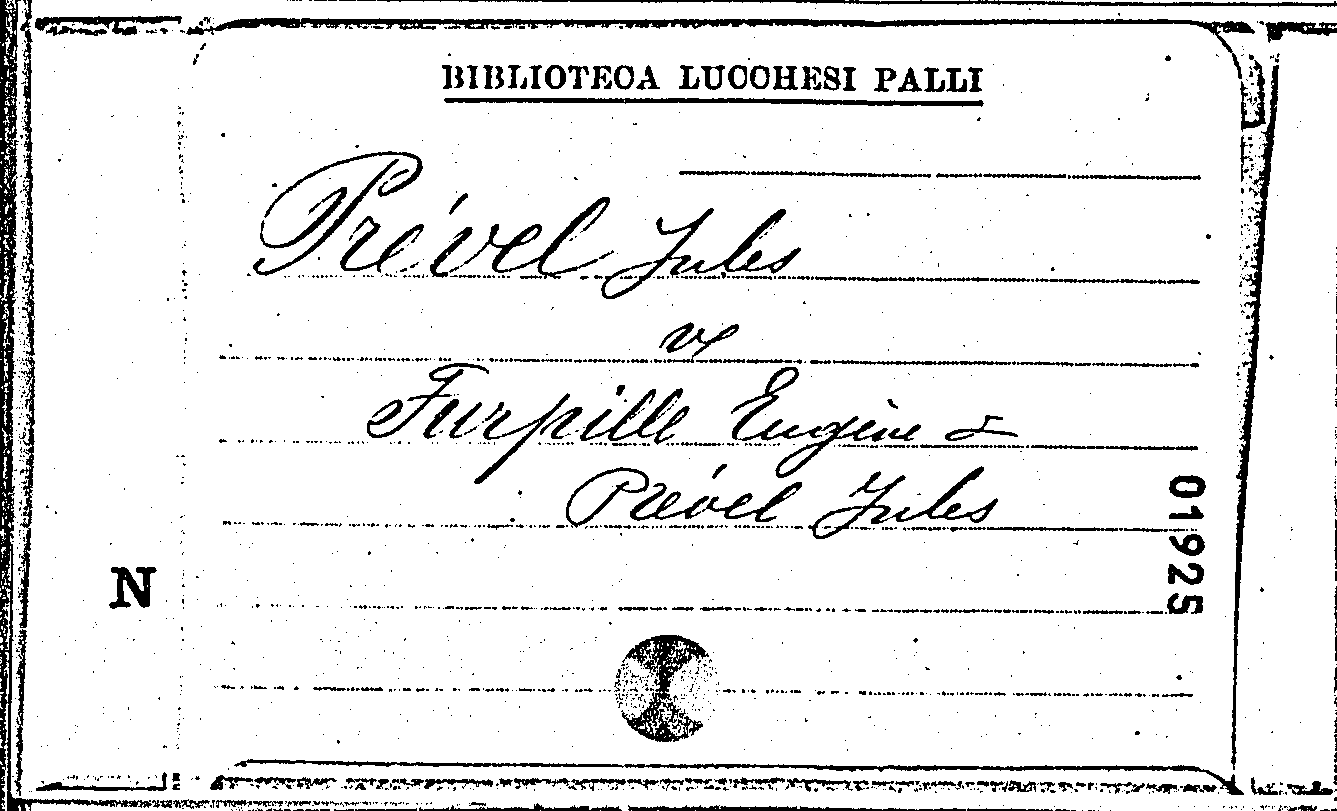 BIBLIOTECA LUCCHESI PALLI
Prével Jules
v
Furpille Eugène &
Prével Jules
01925
N